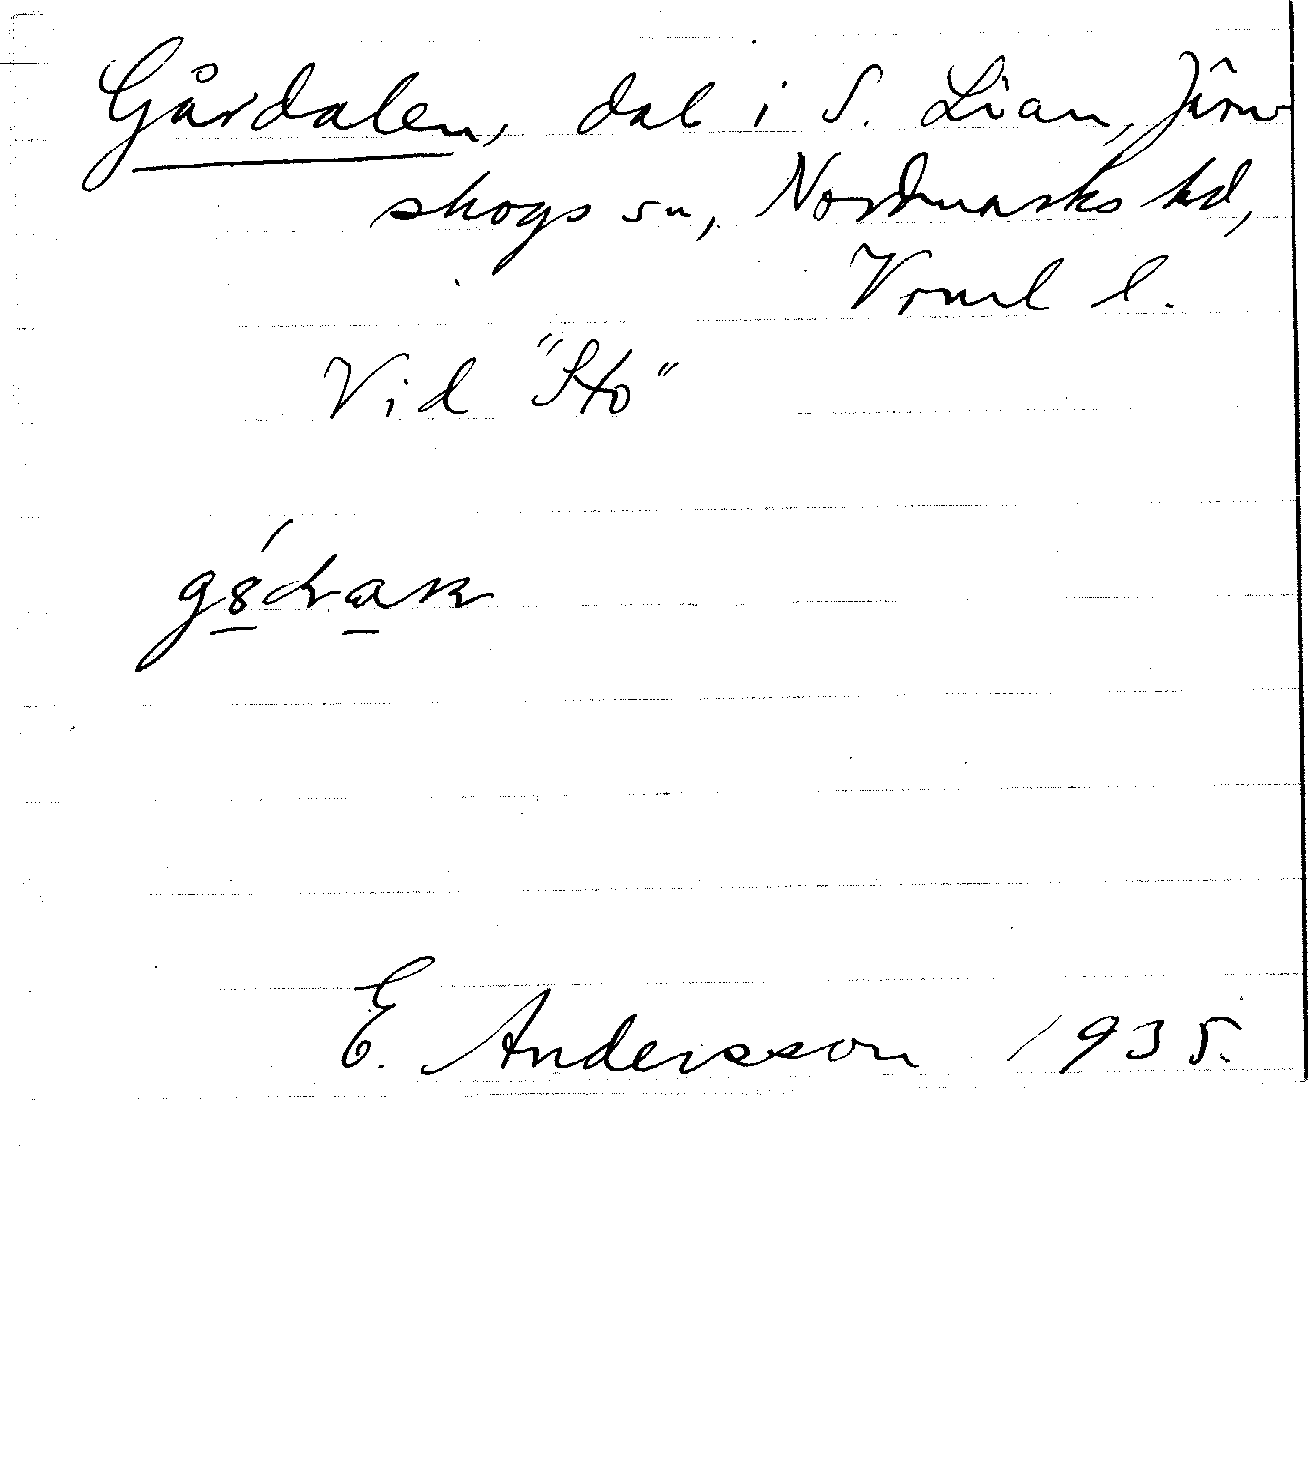 Gårdalen, dal i S. Lian, Järn-
skogs sn, Nordmarks hd,
Vrml l.
Vid "Sto"
E. Andersson 1935.